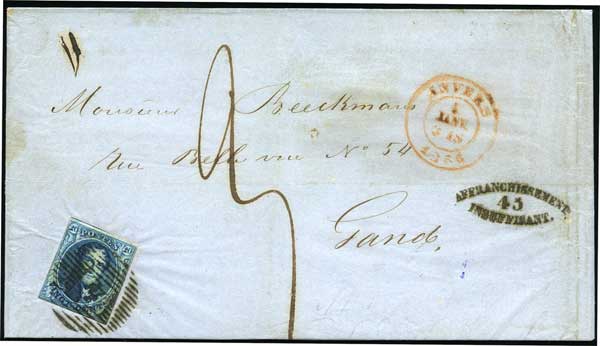 Monsieur Beeckmans
Rue Belle vue No 54
Gand
ANVERS
1
JANV
1856
AFFRANCHISSEMENT
45
INSUFFISANT.
20 POSTES 20